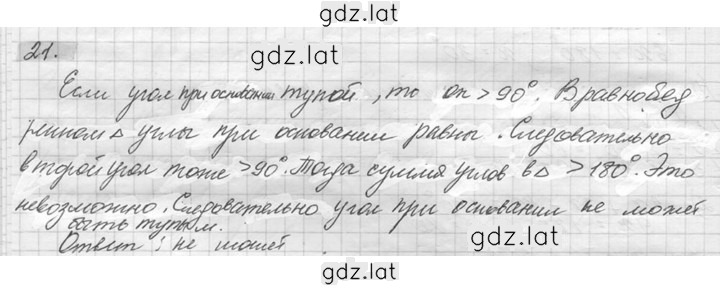 gdz.lat
21.
gdz.lat
Если угол при основании тупой, то он > 90°. В равнобед
ренном △ углы при основании равны. Следовательно
второй угол тоже > 90°. Тогда сумма углов в △ > 180°. Это
невозможно. Следовательно угол при основании не может
быть тупым.
Ответ: не может
gdz.lat
gdz.lat